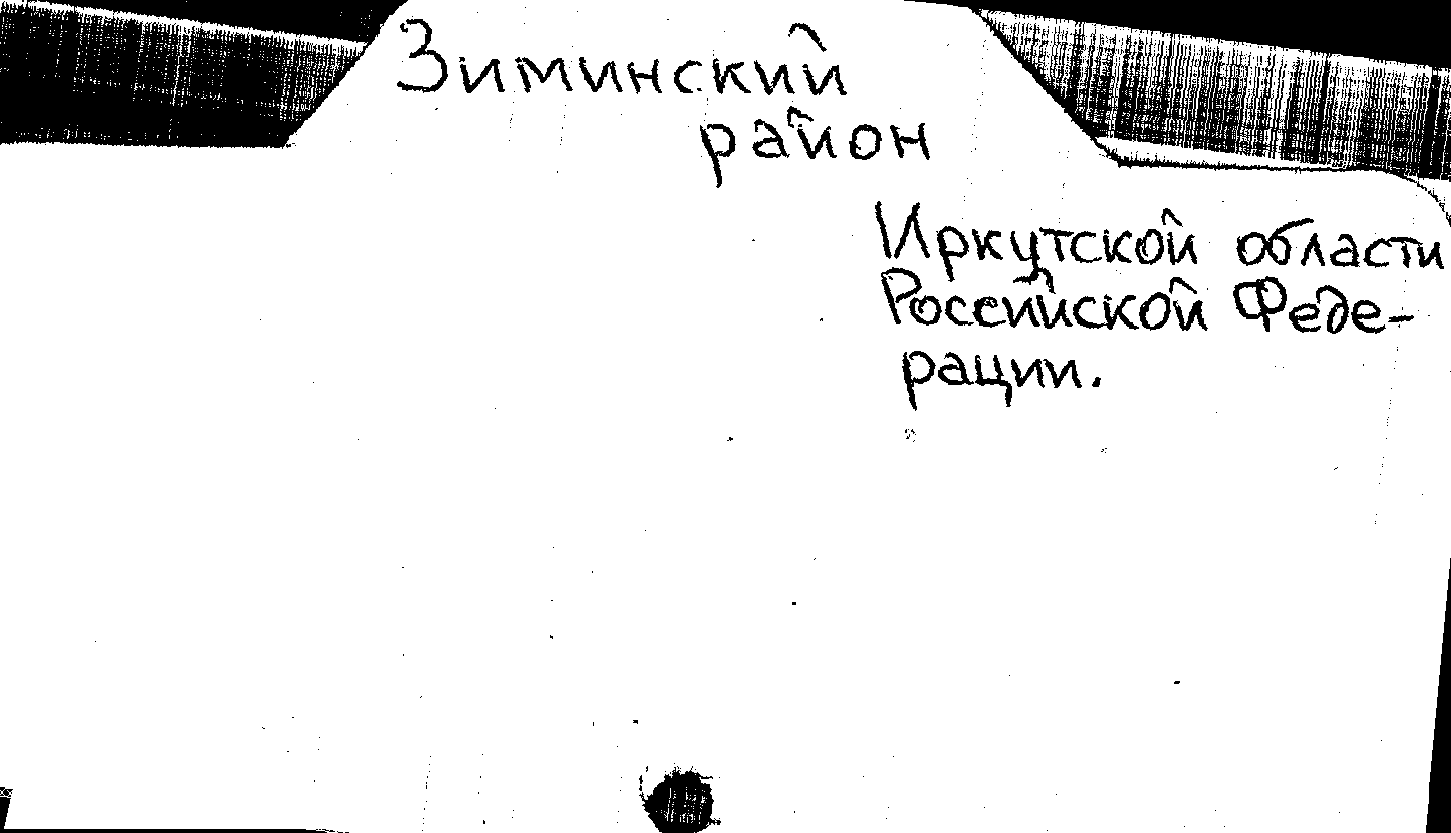 Зиминский
район
Иркутской области
Российской Феде-
рации.